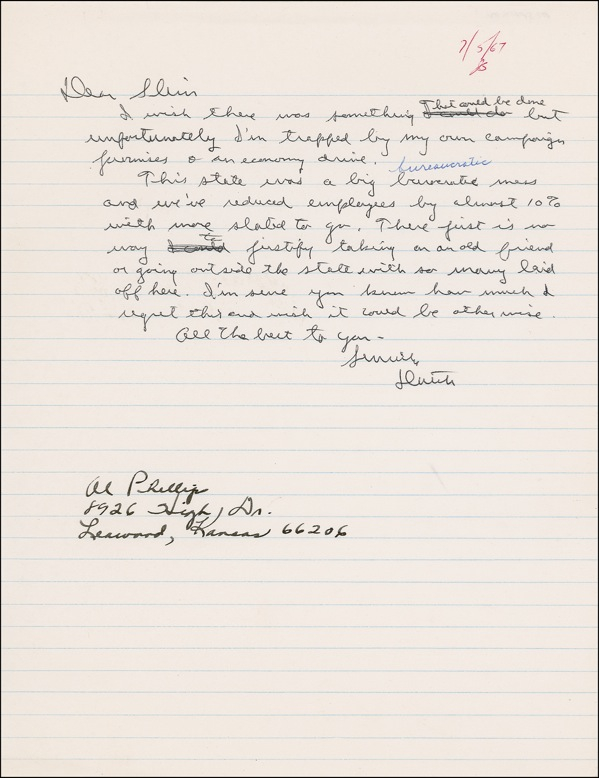 7/5/67
Dear Slim
I wish there was something I could do that could be done but
unfortunately I'm trapped by my own campaign
promises & an economy drive.
bureaucratic
This state was a big burocratic mess
and we've reduced employees by almost 10%
with more slated to go. There just is no
way I could to justify taking on an old friend
or going outside the state with so many laid
off here. I'm sure you know how much I
regret this and wish it could be otherwise.
All the best to you -
Sincerely
Dutch
Al Phillip
8926 High Dr.
Leawood, Kansas 66206